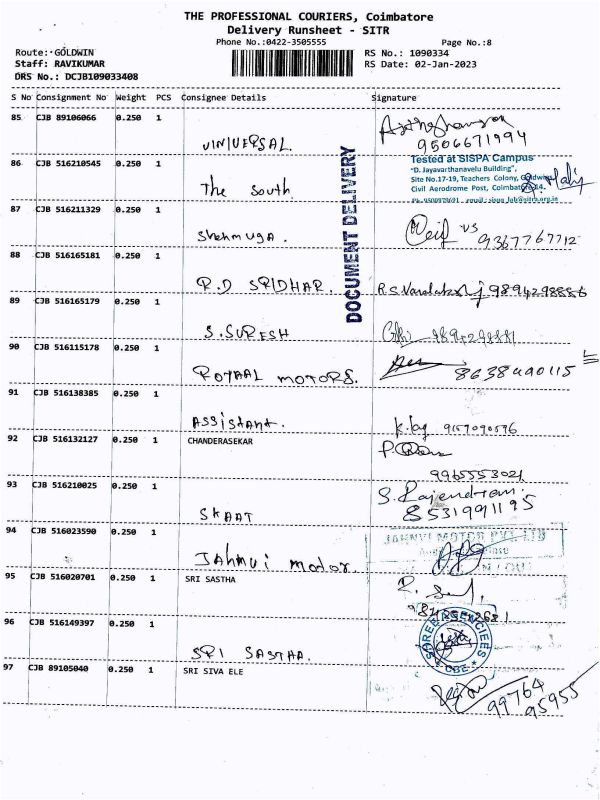 THE PROFESSIONAL COURIERS, Coimbatore
Delivery Runsheet - SITR
Phone No.:0422-3505555 Page No.:8
Route: GOLDWIN RS No.: 1090334
Staff: RAVIKUMAR RS Date: 02-Jan-2023
DRS No.: DCJB109033408
S No Consignment No Weight PCS Consignee Details Signature
85 CJB 89106066 0.250 1
UNIVERSAL. 9506671994
86 CJB 516210545 0.250 1 Tested at SISPA Campus
"D. Jayavarthanavelu Building",
The South Site No.17-19, Teachers Colony, Goldwins
Civil Aerodrome Post, Coimbatore-14.
DOCUMENT DELIVERY
87 CJB 516211329 0.250 1
Shehmuga. 9367767712
88 CJB 516165181 0.250 1
R.D SRIDHAR. 9894298886
89 CJB 516165179 0.250 1
S.SURESH
90 CJB 516115178 0.250 1
ROYAAL MOTORS. 8638490115
91 CJB 516138385 0.250 1
ASSistant. 9159090596
92 CJB 516132127 0.250 1 CHANDERASEKAR
9965553021
93 CJB 516210025 0.250 1 S. Rajendran.
SKAAT 8531991195
94 CJB 516023590 0.250 1 JAHNVI MOTOR PVT LTD
JAhnvi motor.
95 CJB 516020701 0.250 1 SRI SASTHA
96 CJB 516149397 0.250 1 SHREE AGENCIEES
SRI SASTHA. CBE
97 CJB 89105040 0.250 1 SRI SIVA ELE
99764
95955